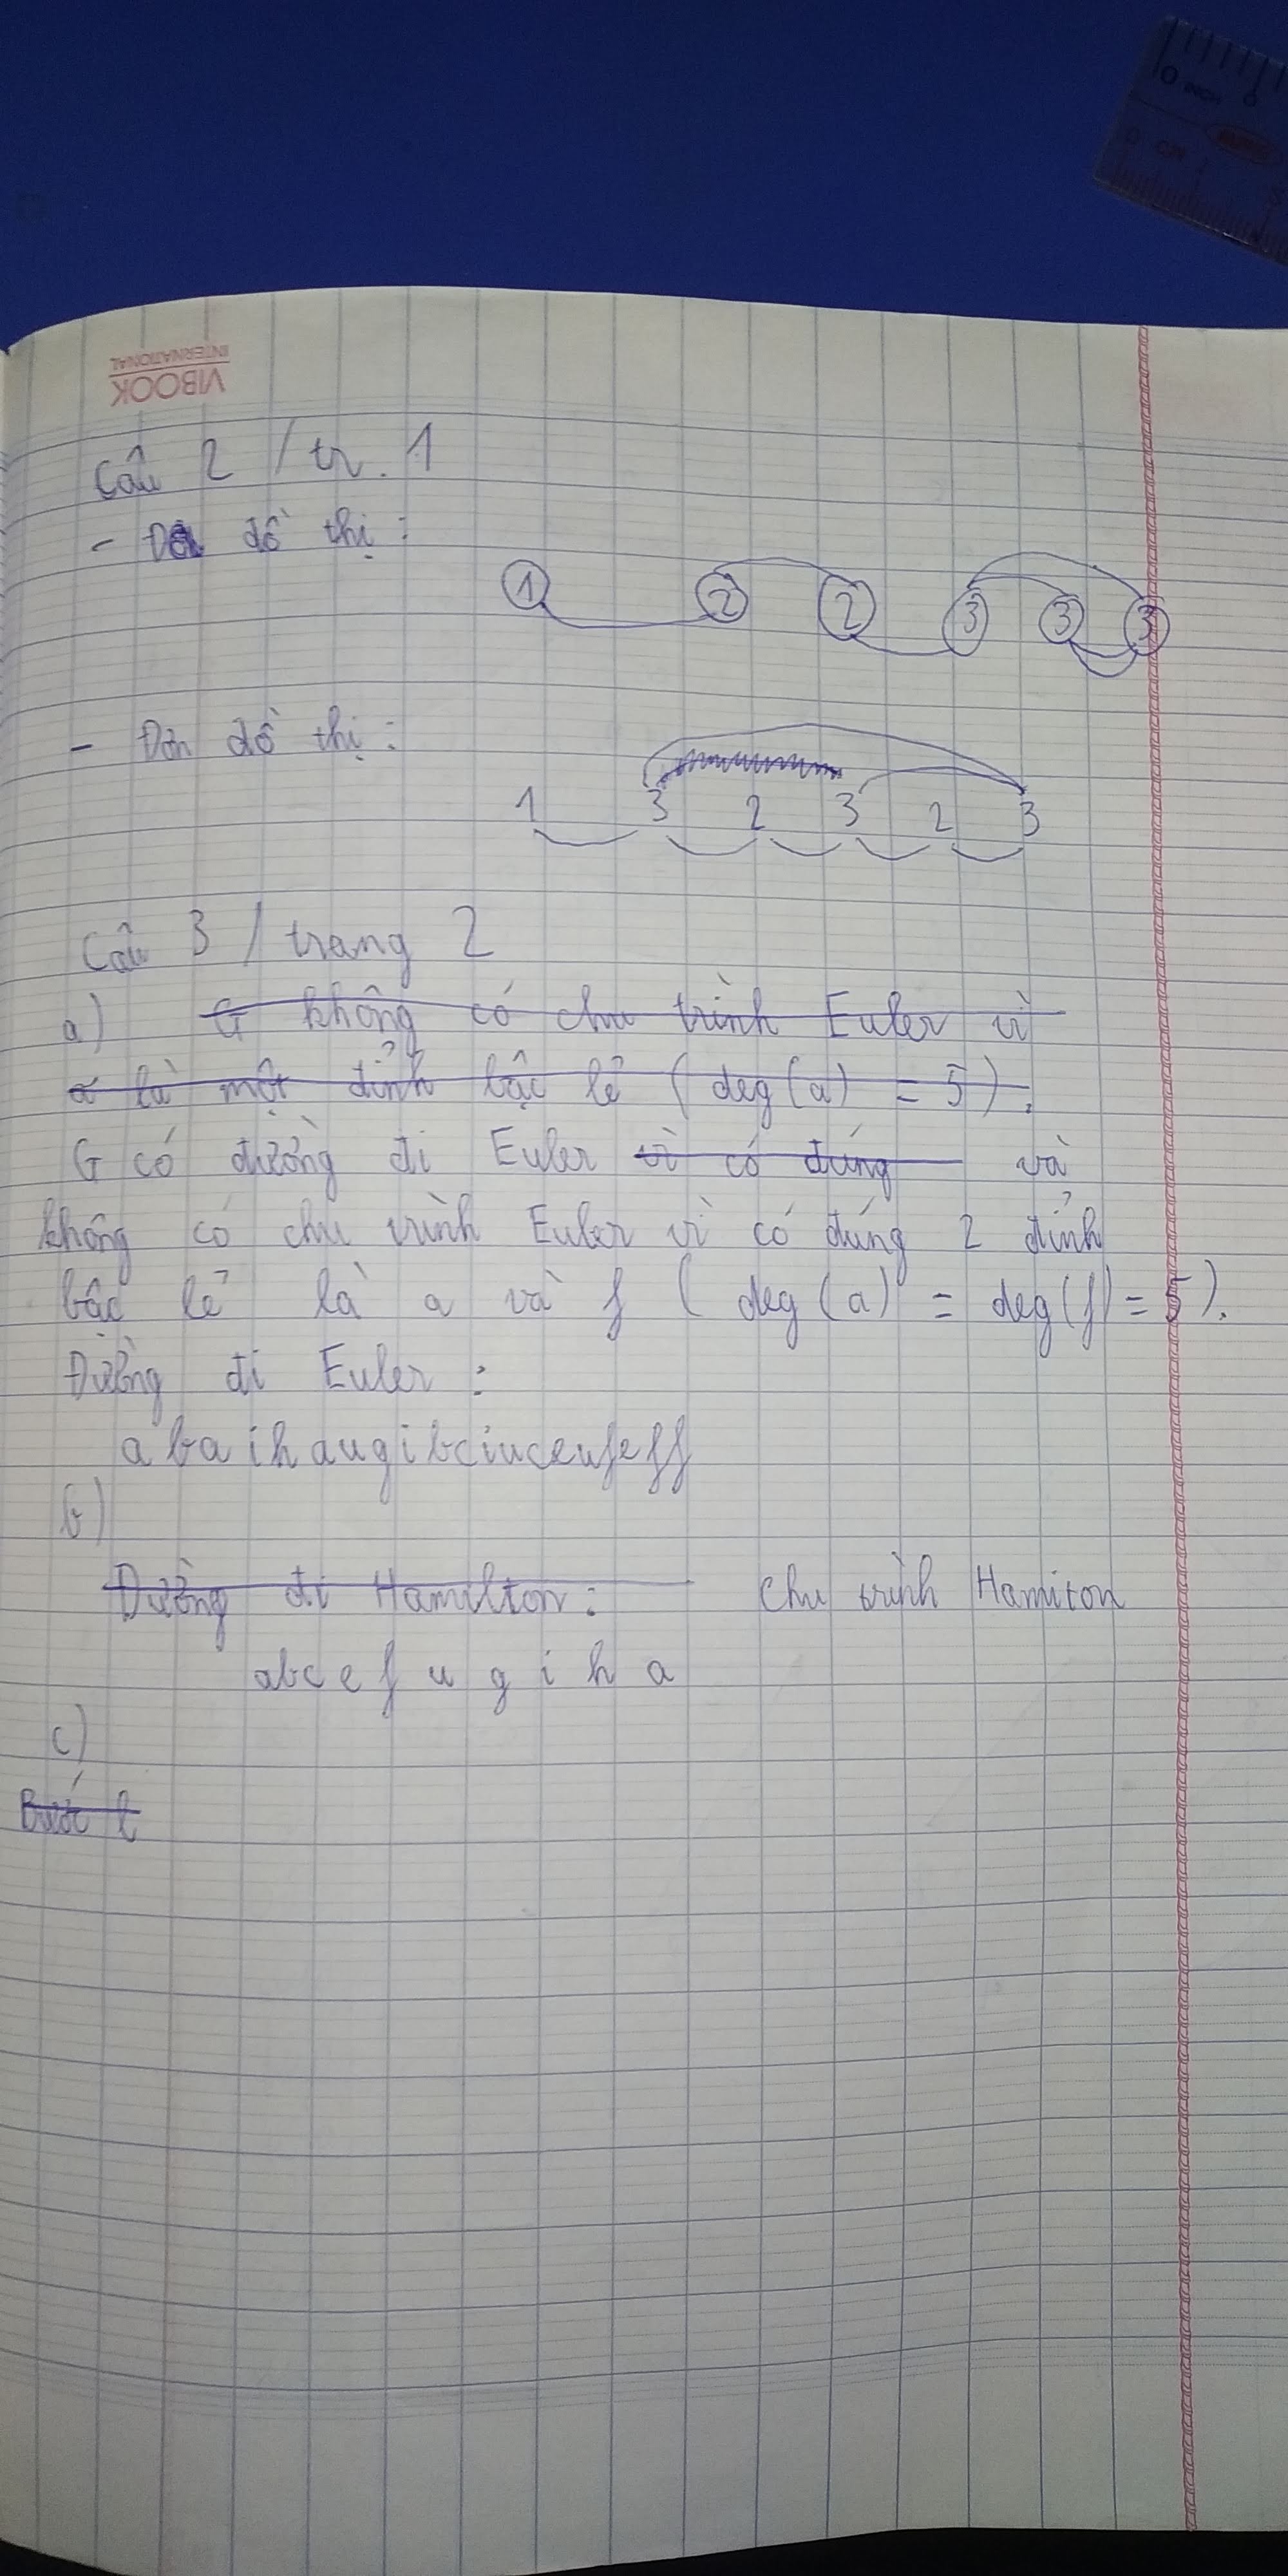 0 INCH
0 CM
VIBOOK
INTERNATIONAL
Câu 2 / tr. 1
- Đa đồ thị:
1 2 2 3 3 3
- Đơn đồ thị:
1 3 2 3 2 3
Câu 3 / trang 2
a) G không có chu trình Euler vì
a là một đỉnh bậc lẻ (deg(a) = 5).
G có đường đi Euler vì có đúng và
không có chu trình Euler vì có đúng 2 đỉnh
bậc lẻ là a và f (deg(a) = deg(f) = 5).
Đường đi Euler:
abaihaugibciuceufeff
b)
Đường đi Hamilton: Chu trình Hamiton
abcefugiha
c)
Bước